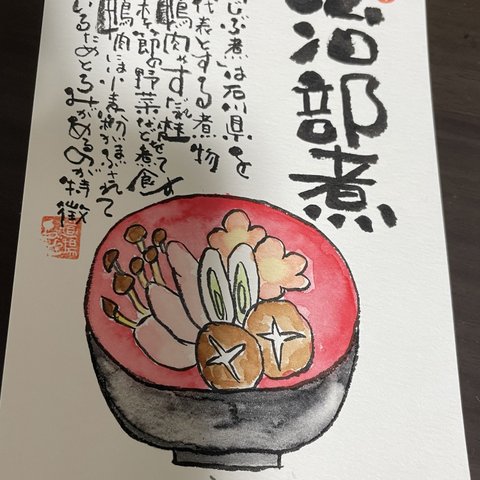 治部煮
"じぶ煮"は石川県を
代表とする煮物
鴨肉やすだれ
節の野菜などと煮
鴨肉には小麦粉がまぶされて
いるためとろみがあるのが特徴